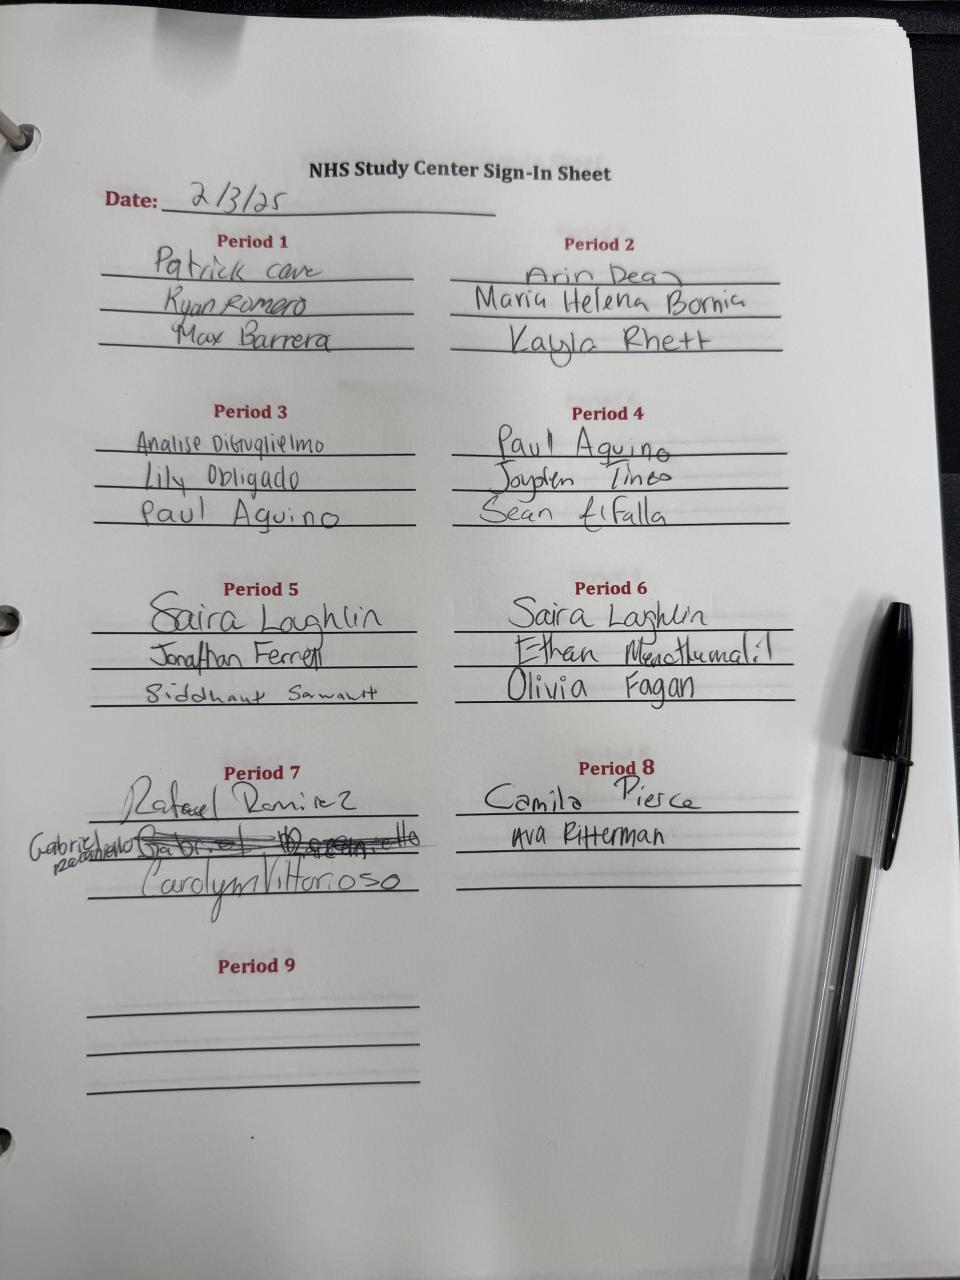 NHS Study Center Sign-In Sheet
Date: 2/3/25
Period 1
Patrick Cave
Ryan Romero
Max Barrera
Period 2
Arin Dean
Maria Helena Bornia
Kayla Rhett
Period 3
Analise DiGuglielmo
Lily Obligado
Paul Aquino
Period 4
Paul Aquino
Jayden Tineo
Sean Elfalla
Period 5
Saira Laghlin
Jonathan Ferrell
Siddhant Sawant
Period 6
Saira Laghlin
Ethan
Olivia Fagan
Period 7
Rafael Ramirez
Gabriel
Carolyn Vittorioso
Period 8
Camila Pierce
Ava Ritterman
Period 9